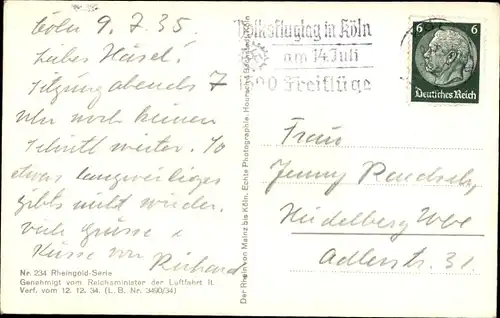 Cöln 9.7.35.
Liebes Häsel!
Sitzung abends 7
Uhr noch keinen
Schritt weiter. So
etwas langweiliges
gibts nicht wieder.
Viele Grüsse +
Küsse von Richard
Nr. 234 Rheingold-Serie
Genehmigt vom Reichsminister der Luftfahrt lt.
Verf. vom 12. 12. 34. (L. B. Nr. 3490/34)
Der Rhein von Mainz bis Köln. Echte Photographie.
Volksflugtag in Köln
am 14. Juli
Freiflüge
6 6
Deutsches Reich
Frau
Jenny
Heidelberg
Adlerstr. 31.